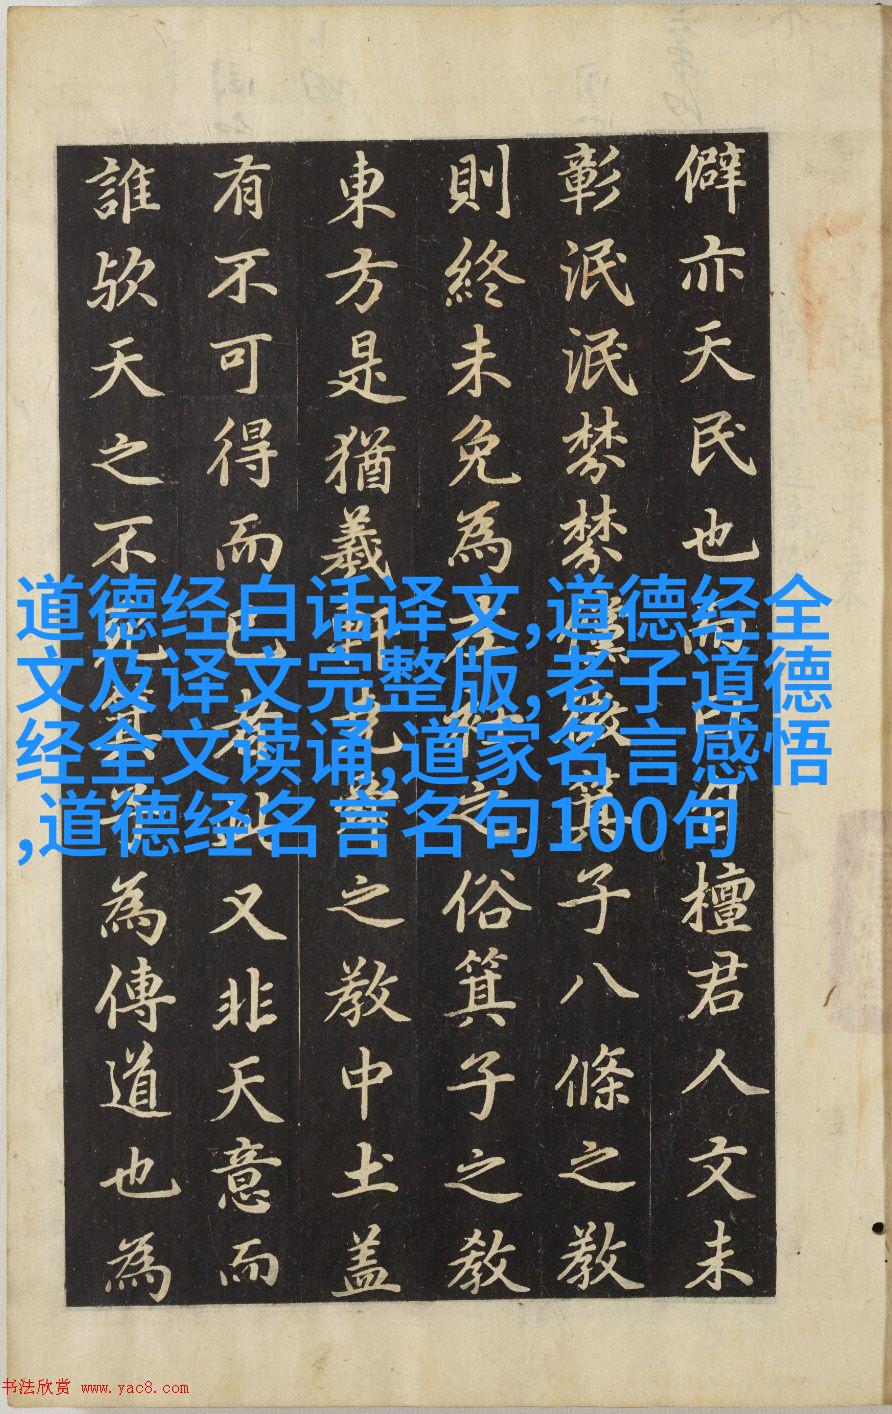 僻亦天民也而自檀君人文未
彰泯泯棼棼儻微箕子八條之教
則終未免為左衽之俗箕子之教
東方是猶羲軒堯舜之教中土盖
有不可得而已者此又非天意而
誰歟天之不死箕子為傳道也為
道德经白话译文,道德经全
文及译文完整版,老子道德
经全文读诵,道家名言感悟
,道德经名言名句100句
书法欣赏 www.yac8.com